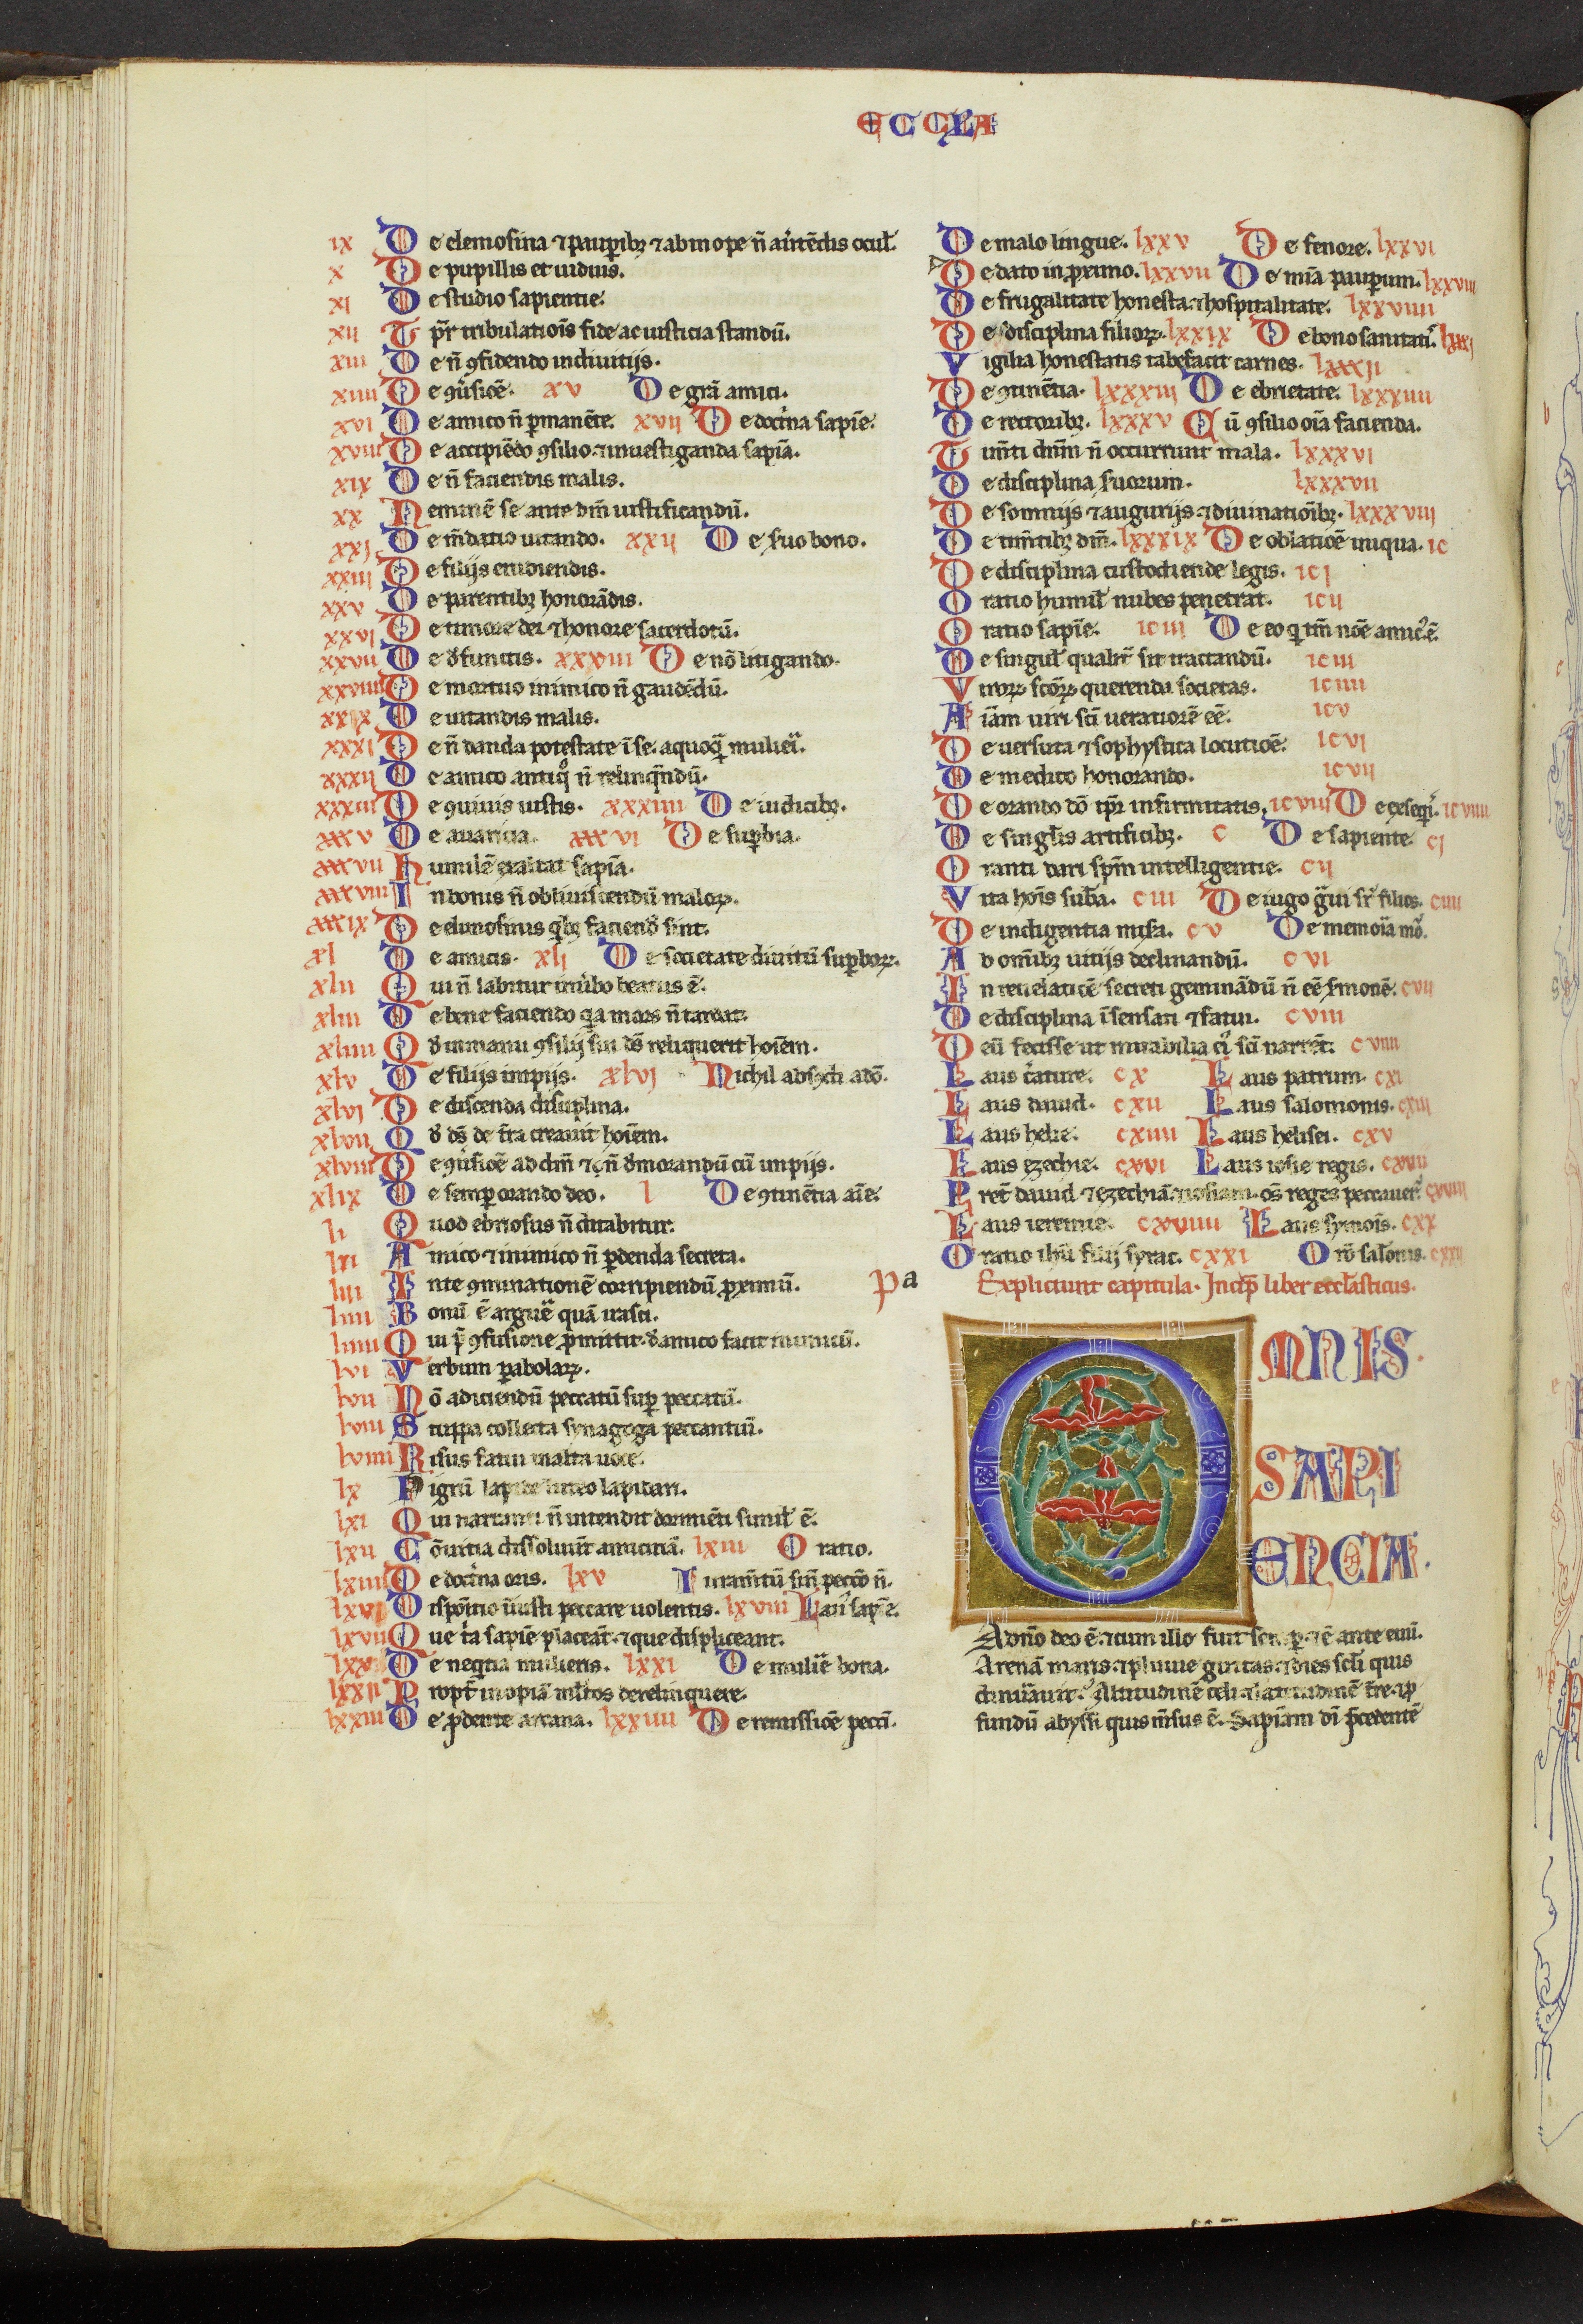 ECCLA
ix De elemosina ⁊ paupib; ⁊ ab inope ñ aũtẽdis ocul.
x De pupillis et uiduis.
xi De studio sapientie.
xii T pr̃ tribulatiois fide ac iusticia standũ.
xiii De ñ ꝯfidendo in diuitijs.
xiiii De ꝯũsiõe. xv De grã amici.
xvi De amico ñ ꝑmanẽte. xvij De doct͛na sapiẽ.
xviii De accipiẽdo ꝯsilio ⁊ inuestiganda sapĩa.
xix De ñ faciendis malis.
xx Neminẽ se ante dm̃ iustificandũ.
xxj De m̃datio uitando. xxij De suo bono.
xxiii De filijs erudiendis.
xxv De parentib; honorãdis.
xxvi De timore dei ⁊ honore sacerdotũ.
xxvii De d̛functis. xxxiii De nõ litigando.
xxviiii De mortuo inimico ñ gaudẽdũ.
xxix De uitandis malis.
xxxi De ñ danda potestate ĩ se aquoq̃ muliei͛.
xxxij De amico antiq̊ ñ relinq̃ndũ.
xxxiii De ꝯuiuis iustis. xxxiiii De iudicib;.
xxxv De auaricia. xxxvi De supbia.
xxxvii Humilẽ exaltat sapĩa.
xxxviii In bonis ñ obliuiscendũ maloꝝ.
xxxix De elimosinis q͛b; faciend̛ sint.
xl De amicis. xlj De societate diuitũ supboꝝ.
xlii Qui ñ labitur in ũbo beatus ẽ.
xliii De bene faciendo q͛a mors ñ tardat.
xliiii Qd̛ in manu ꝯsilij sui ds̃ reliquerit hoĩem.
xlv De filijs impijs. xlvj Nichil absꝯdi a dõ.
xlvj De discenda disciplina.
xlvii Qd̛ ds̃ de t̃ra creauit hoĩem.
xlviii De ꝯũsiõe ad dm̃ ⁊ ꝙ ñ d̛morandũ cũ impijs.
xlix De semp orando deo. l De ꝯtinẽtia aĩe.
li Quod ebriosus ñ ditabitur.
lii Amico ⁊ inimico ñ pdenda secreta.
liii Ante ꝯminationẽ corripiendũ proximũ.
liiii Bonũ ẽ arguẽ quã irasci.
liiii Qui p̃ ꝯfusione ꝓmittit d̛ amico facit inimicũ.
lvi Verbum pabolaꝝ.
lvii Nõ adiciendũ peccatũ sup peccatũ.
lviii Stuppa collecta synagoga peccantiũ.
lviiii Risus fatui
lx Pigrũ lapide luteo lapidari.
lxi Qui narranti ñ intendit dormiẽti simil ẽ.
lxii Cõuitia dissoluũt amicitiã. lxiii Oratio.
lxiiii De doct͛na oris. lxv Iuram̃tũ sin̄ peccõ ñ.
lxvi Dispõitio iniusti peccare uolentis. lxviii Laus sapĩe.
lxvii Que t͛a sapiẽ placeãt ⁊ que displiceant.
lxx De neq̃tia mulieris. lxxi De muliẽ bona.
lxxii Propt̃ inopiã m̃ltos derelinquere.
lxxiii De pdente arcana. lxxiiii De remissiõe pecci.
De malo lingue. lxxv De fenore. lxxvi
De dato in proximo. lxxvii De mĩa paupum. lxxviii
De frugalitate honesta ⁊ hospitalitate. lxxviiii
De disciplina filioꝝ. lxxix De bono sanitati͛. lxxxj
Vigilia honestatis tabefacit carnes. lxxxij
De ꝯtinẽtia. lxxxiij De ebrietate. lxxxiiii
De rectorib;. lxxxv Cũ ꝯsilio oĩa facienda.
Tim̃ti dm̃m ñ occurrunt mala. lxxxvi
De disciplina suorum. lxxxvii
De somnijs ⁊ augurijs ⁊ diuinatiõib;. lxxxviij
De tim̃tib; dm̃. lxxxix De oblatiõe iniqua. ic
De disciplina custodiende legis. icj
Oratio humil nubes penetrat. icij
Oratio sapĩe. iciij De eo q tm̃ noĩe amic͛ ẽ.
De singul qualit͛ sit tractandũ. iciii
Viroꝝ scõꝝ querenda societas. iciiii
Aĩam uiri sci ueratiorẽ eẽ. icv
De uersuta ⁊ sophystica locutiõe. icvi
De medico honorando. icvij
De orando dõ tp̃r infirmitatis. icviij De exseqi͛. icviiii
De singlis artificib;. c De sapiente. cj
Oranti dari sp̃m intelligentie. cij
Vita hoĩs suba. ciii De iugo g̃ui sr͛ filios. ciiii
De indigentia misa. cv De memoĩa mo͛.
Ab omĩb; uitijs declinandũ. cvi
In reuelatiõe secreti geminãdũ ñ eẽ s̛monẽ. cvii
De disciplina ĩsensati ⁊ fatui. cviii
Deũ fecisse ut mirabilia ei͛ sci narrẽt. cviiii
Laus c͛ature. cx Laus patrum. cxi
Laus dauid. cxii Laus salomonis. cxiii
Laus helie. cxiiii Laus helisei. cxv
Laus ezechie. cxvi Laus iosie regis. cxvii
Pret̃ dauid ⁊ ezechiã ⁊ iosiam. os̃ reges peccauer͛. cxviii
Laus ieremie. cxviiii Laus symois. cxx
Oratio ihũ filij syrac. cxxi Oro͛ salonis. cxxii
pa Expliciunt capitula. Incip̃ liber eccl̃asticus.
OMNIS.
SAPI
ENCIA.
A dño deo ẽ. ⁊ cum illo fuit semp. ⁊ ẽ ante euũ.
Arenã maris. ⁊ pluuie guttas. ⁊ dies scli quis
dinũauit? Altitudinẽ celi. ⁊ latitudinẽ t̃re. ⁊ p̱
fundũ abyssi quis m̃sus ẽ. Sapĩam di p̃cedentẽ